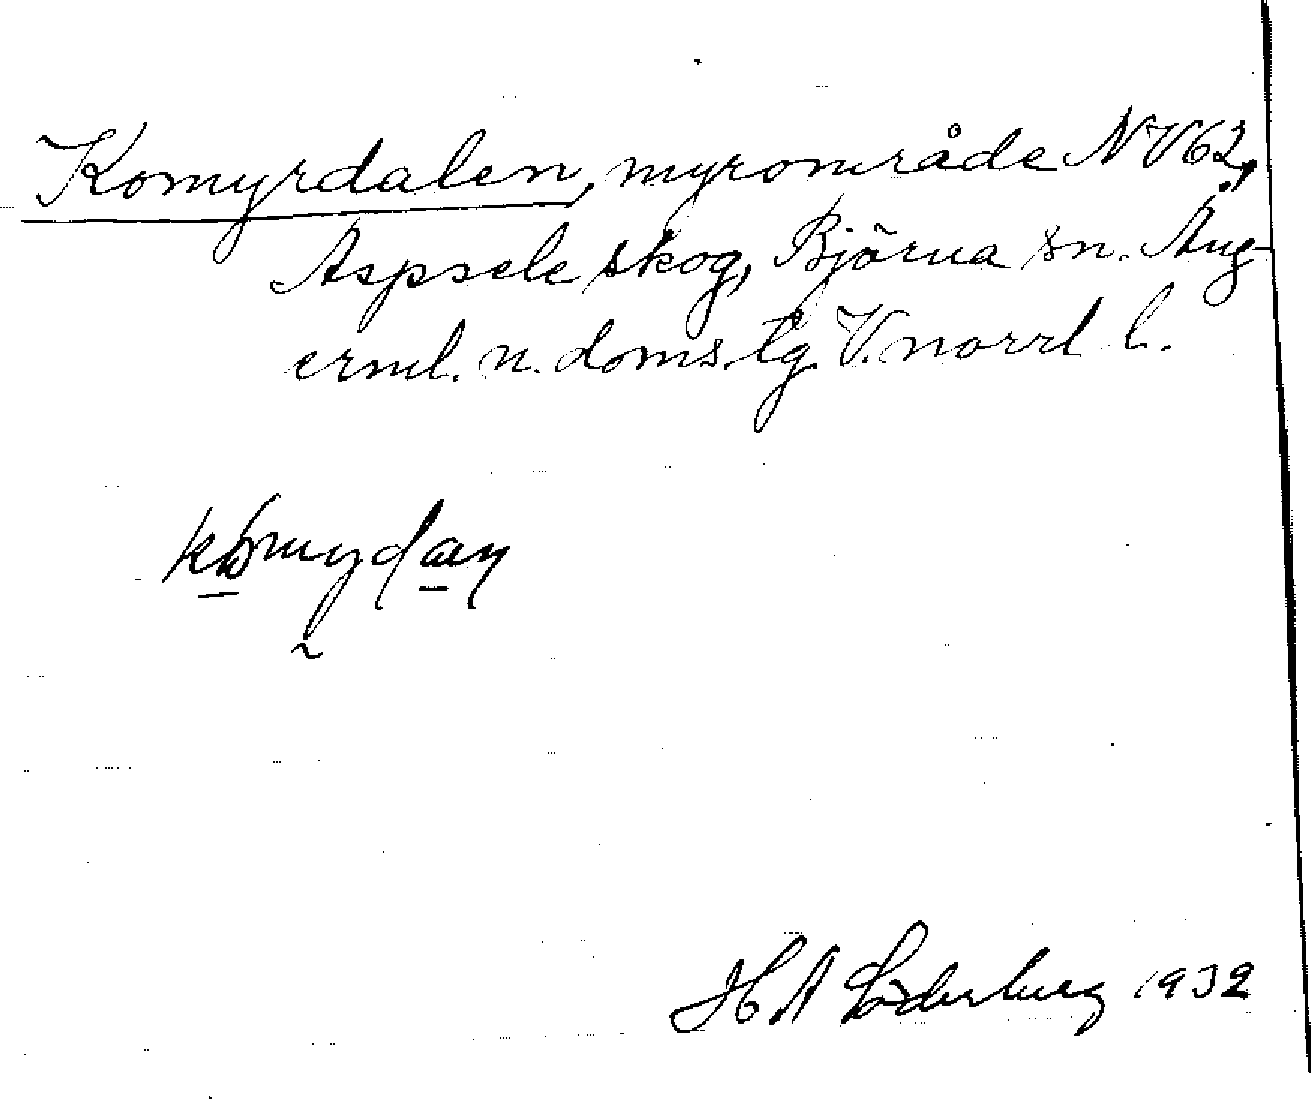 Komyrdalen, myrområde NV62,
Aspsele skog, Björna sn. Ång-
erml. n. doms.lg. V.norrl l.
H A Söderberg 1932